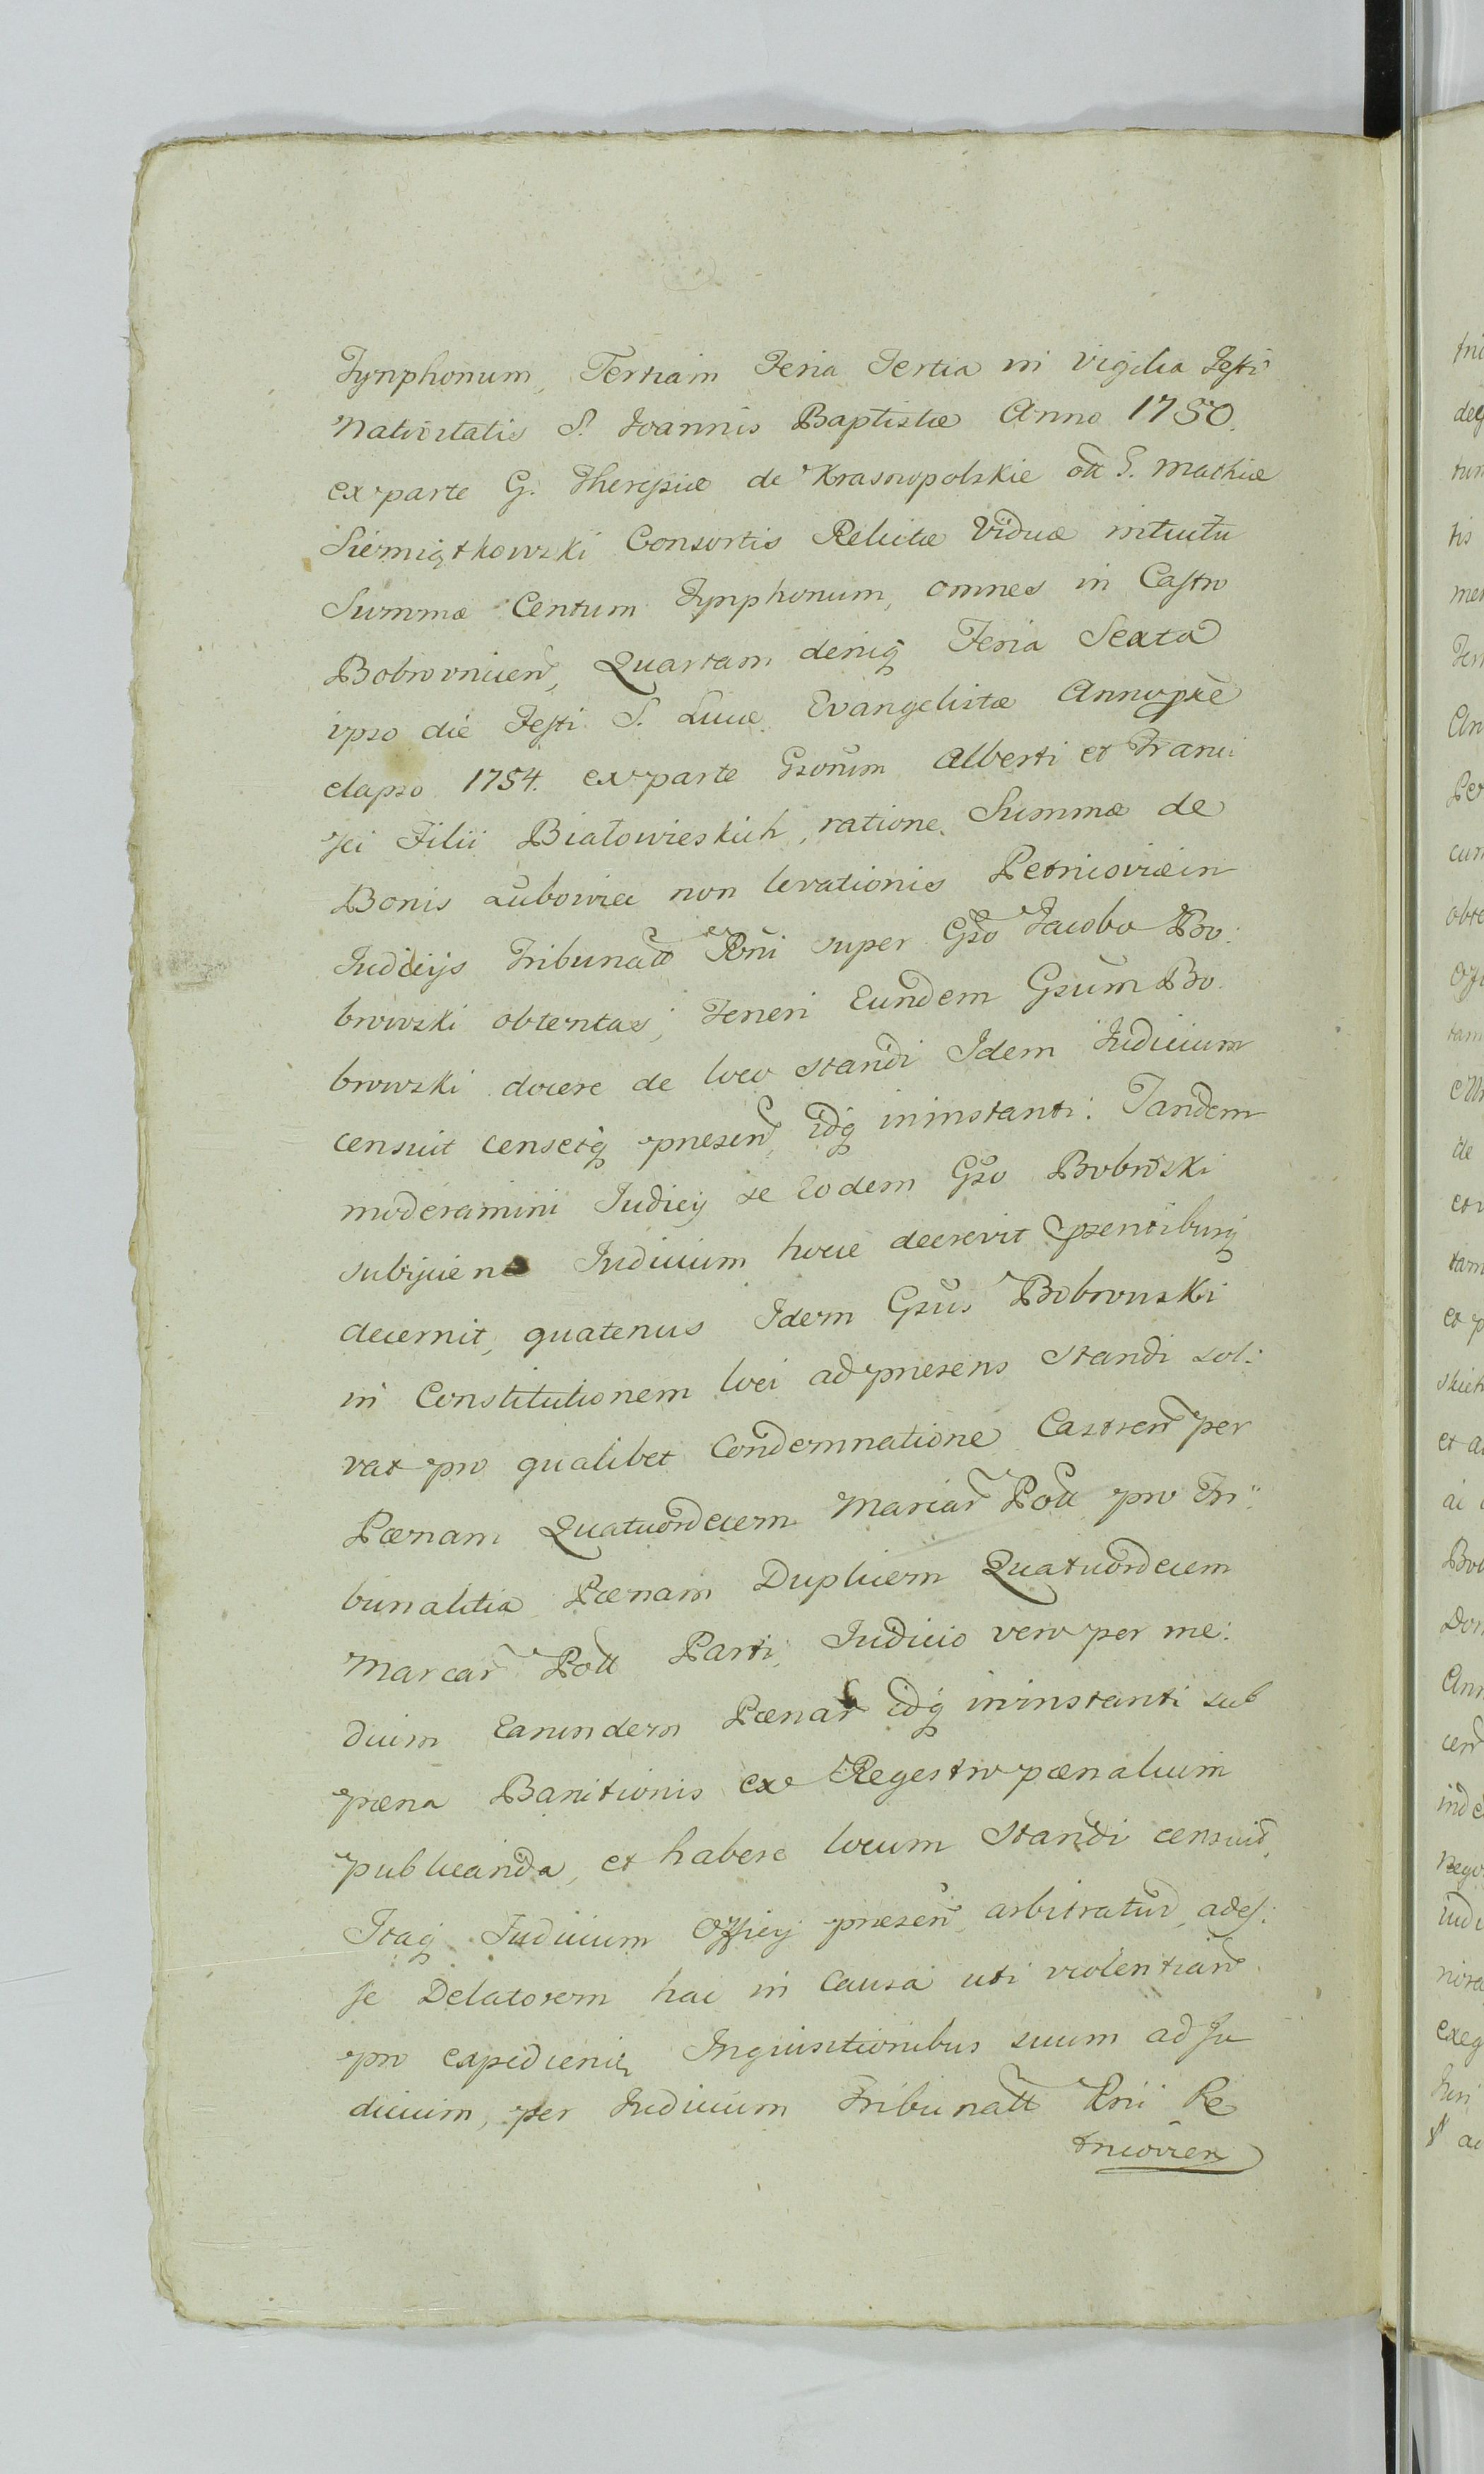 Tynphonum, Tertiam Feria Tertia in Vigilia Festi
Nativitatis S. Joannis Baptistæ Anno 1750.
ex parte G. Theresiæ de Krasnopolskie olt G. Mathiæ
Siemiątkowski Consortis Relictæ Viduæ intuitu
Summæ Centum Tynphonum, omnes in Castro
Bobrovnicen̄, Quartam deniq̨ Feria Sexta
ipso die Festi S. Lucæ Evangelistæ Anno præ
elapso 1754. ex parte Gsorum Alberti et Franci
sci Filii Białowieskich, ratione Summæ de
Bonis Lubowiec non levationis Petricoviæ in
Judicijs Tribunalt Rñi super Gso Jacobo Bo:
browski obtentas; Teneri Eundem Gsum Bo:
browski docere de loco standi Idem Judicium
censuit censetq̨ præsen̄, idq̨ in instanti. Tandem
moderamini Judicij se Eodem Gso Bobrowski
subijciene Judicium hocce decrevit præsentibusq̨
decernit, quatenus Idem Gsus Bobrowski
in Constitutionem loci ad præsens standi sol:
vat pro qualibet Condemnatione Castren̄ per
Pænam Quatuordecem Marcar̄ Poll pro Tri:
bunalitia Pænam Duplicem Quatuordecem
Marcar̄ Poll Parti, Judicio vero per me:
dium Earundem Pænar̄ idq̨ in instanti sub
pæna Banitionis ex Regestro pænalium
publicanda, et habere locum standi censuit.
Itaq̨ Judicium Officij præsen̄ arbitratur, adeſ:
se Delatorem hac in Causa uti violentiar̄
pro expedienis Inquisitionibus suum ad Ju
dicium, per Judicium Tribunalt Rñi Pe
tricovien̄